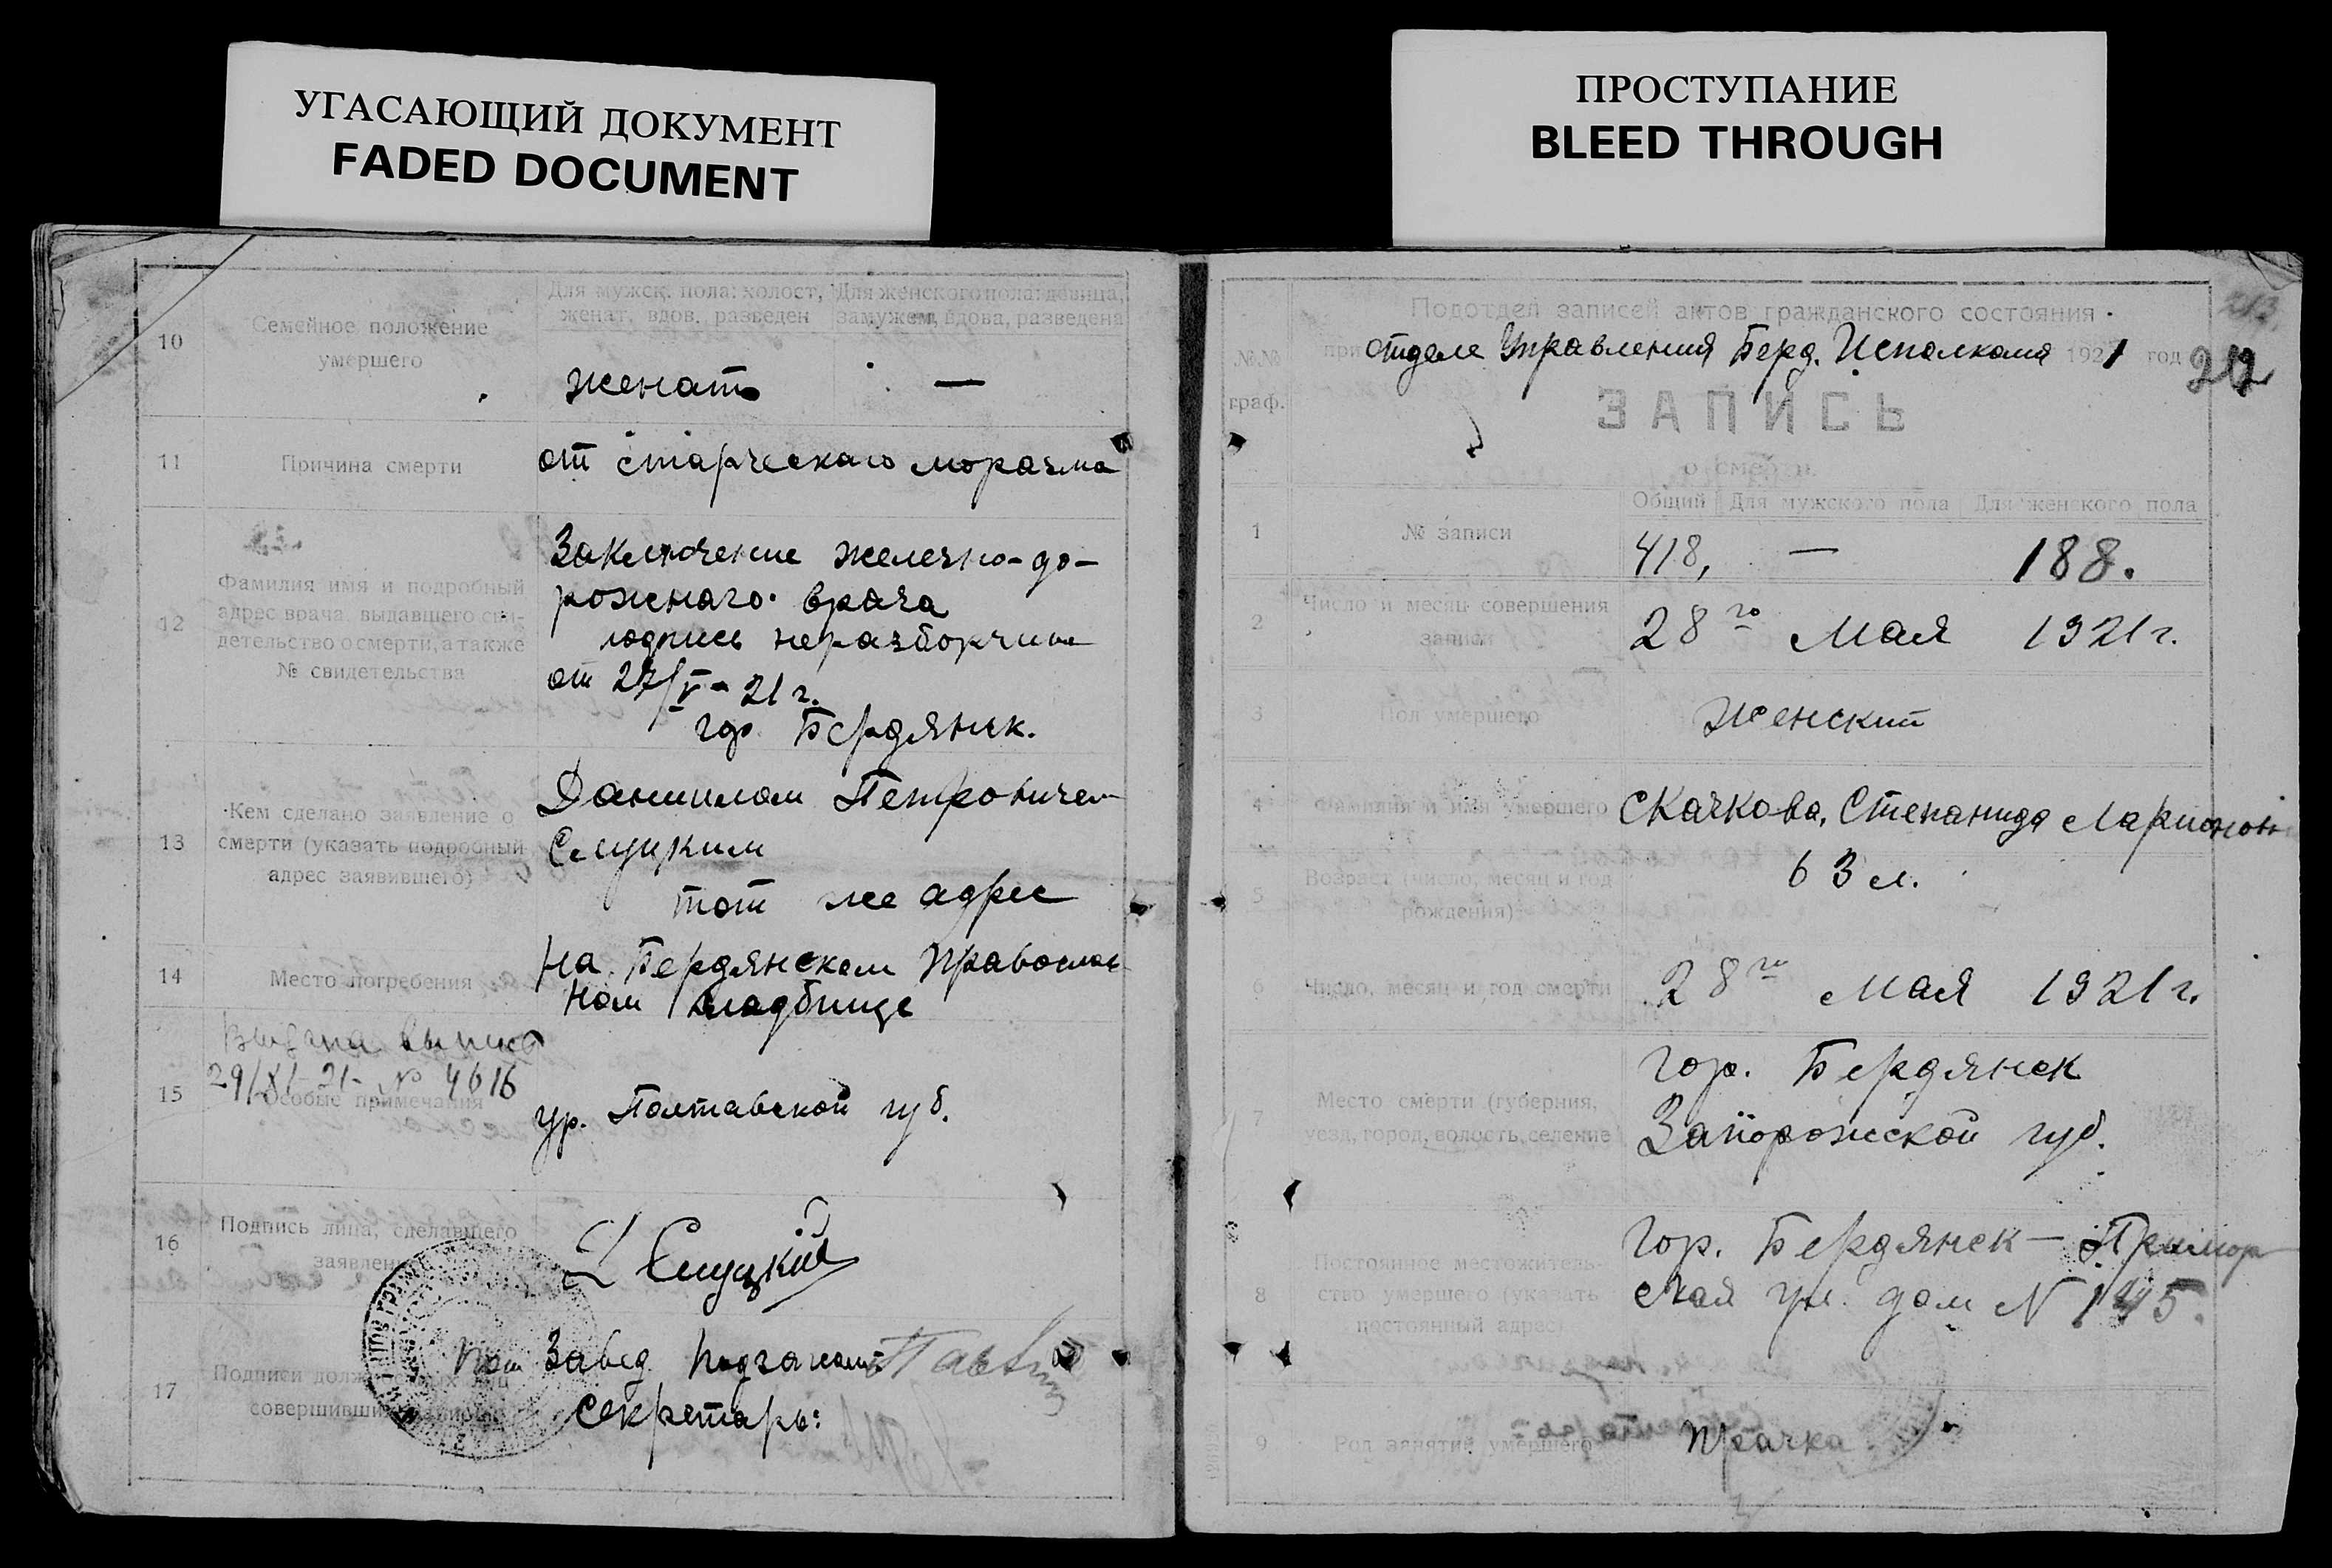 УГАСАЮЩИЙ ДОКУМЕНТ
FADED DOCUMENT
10
Семейное положение
умершего
Для мужск. пола: холост,
женат, вдов, разведен
Для женского пола: девица,
замужем, вдова, разведена
женатъ
—
11
Причина смерти
от старческаго моразма
12
Фамилия имя и подробный
адрес врача, выдавшего сви-
детельство о смерти, а также
№ свидетельства
Заключение железно-до-
рожнаго врача
подпись неразборчива
от 27/V - 21 г.
гор. Бердянск.
13
Кем сделано заявление о
смерти (указать подробный
адрес заявившего)
Даниилом Петровичем
Слуцким
тот же адрес
14
Место погребения
На Бердянском Православ
ном кладбище
15
Выдана выпись
29/XI-21- № 4616
Особые примечания
ур. Полтавской губ.
16
Подпись лица, сделавшего
заявлен
Д Слуцкий
17
Подписи долж ых лиц
совершивши
Завед Подзагсом
Секретарь:
ПРОСТУПАНИЕ
BLEED THROUGH
213
№№
граф.
Подотдел записей актов гражданского состояния
при отделе Управления Берд. Исполкома 1921 год
212
ЗАПИСЬ
о смерти.
Общий Для мужского пола Для женского пола
1
№ записи
418, — 188.
2
Число и месяц совершения
записи
28го Мая 1921 г.
3
Пол умершего
Женский
4
Фамилия и имя умершего
Скачкова, Степанида Ларионов
5
Возраст (число, месяц и год
рождения)
63 л.
6
Число, месяц и год смерти
28го Мая 1921 г.
7
Место смерти (губерния,
уезд, город, волость, селение
Гор. Бердянск
Запорожской губ.
8
Постоянное местожитель-
ство умершего (указать
постоянный адрес)
Гор. Бердянск — Примор
ская ул. дом N 145.
9
Род занятий умершего
Прачка